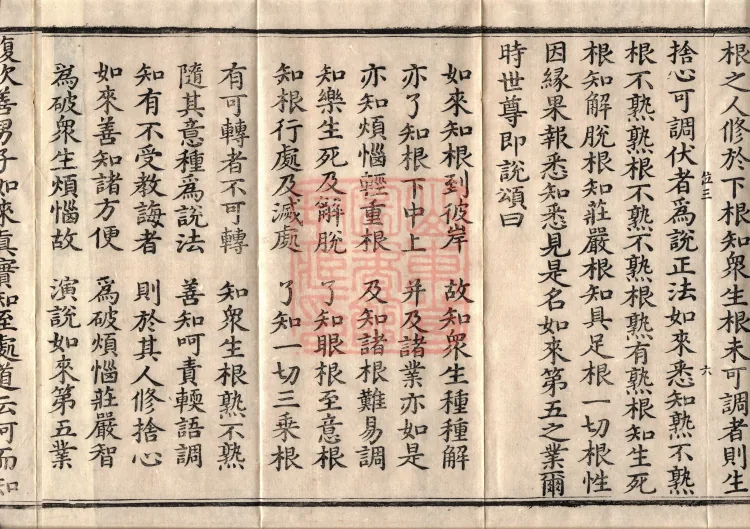 根之人修於下根知衆生根未可調者則生
捨心可調伏者爲說正法如來悉知熟不熟
根不熟熟根不熟不熟根熟有熟根知生死
根知解脫根知莊嚴根知具足根一切根性
因緣果報悉知悉見是名如來第五之業爾
時世尊即說頌曰
如來知根到彼岸 故知衆生種種解
亦了知根下中上 并及諸業亦如是
亦知煩惱輕重根 及知諸根難易調
知樂生死及解脫 了知眼根至意根
知根行處及滅處 了知一切三乘根
有可轉者不可轉 知衆生根熟不熟
隨其意種爲說法 善知呵責輭語調
知有不受教誨者 則於其人修捨心
如來善知諸方便 爲破煩惱莊嚴智
爲破衆生煩惱故 演說如來第五業
復次善男子如來眞實知至處道云何而知
六